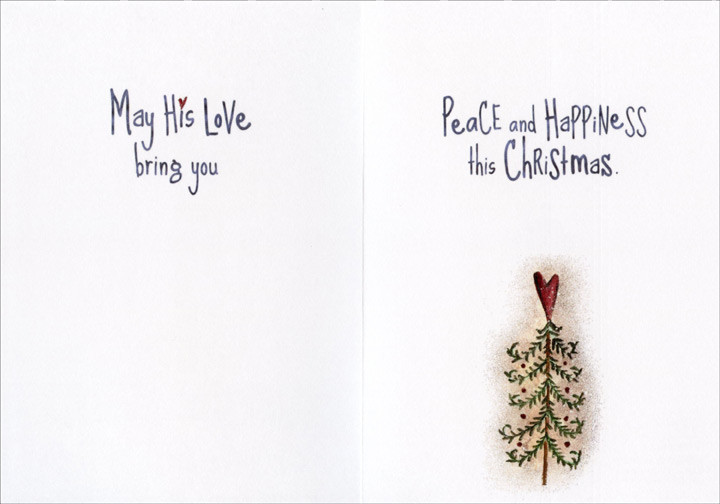 May His Love
bring you
Peace and Happiness
this Christmas.